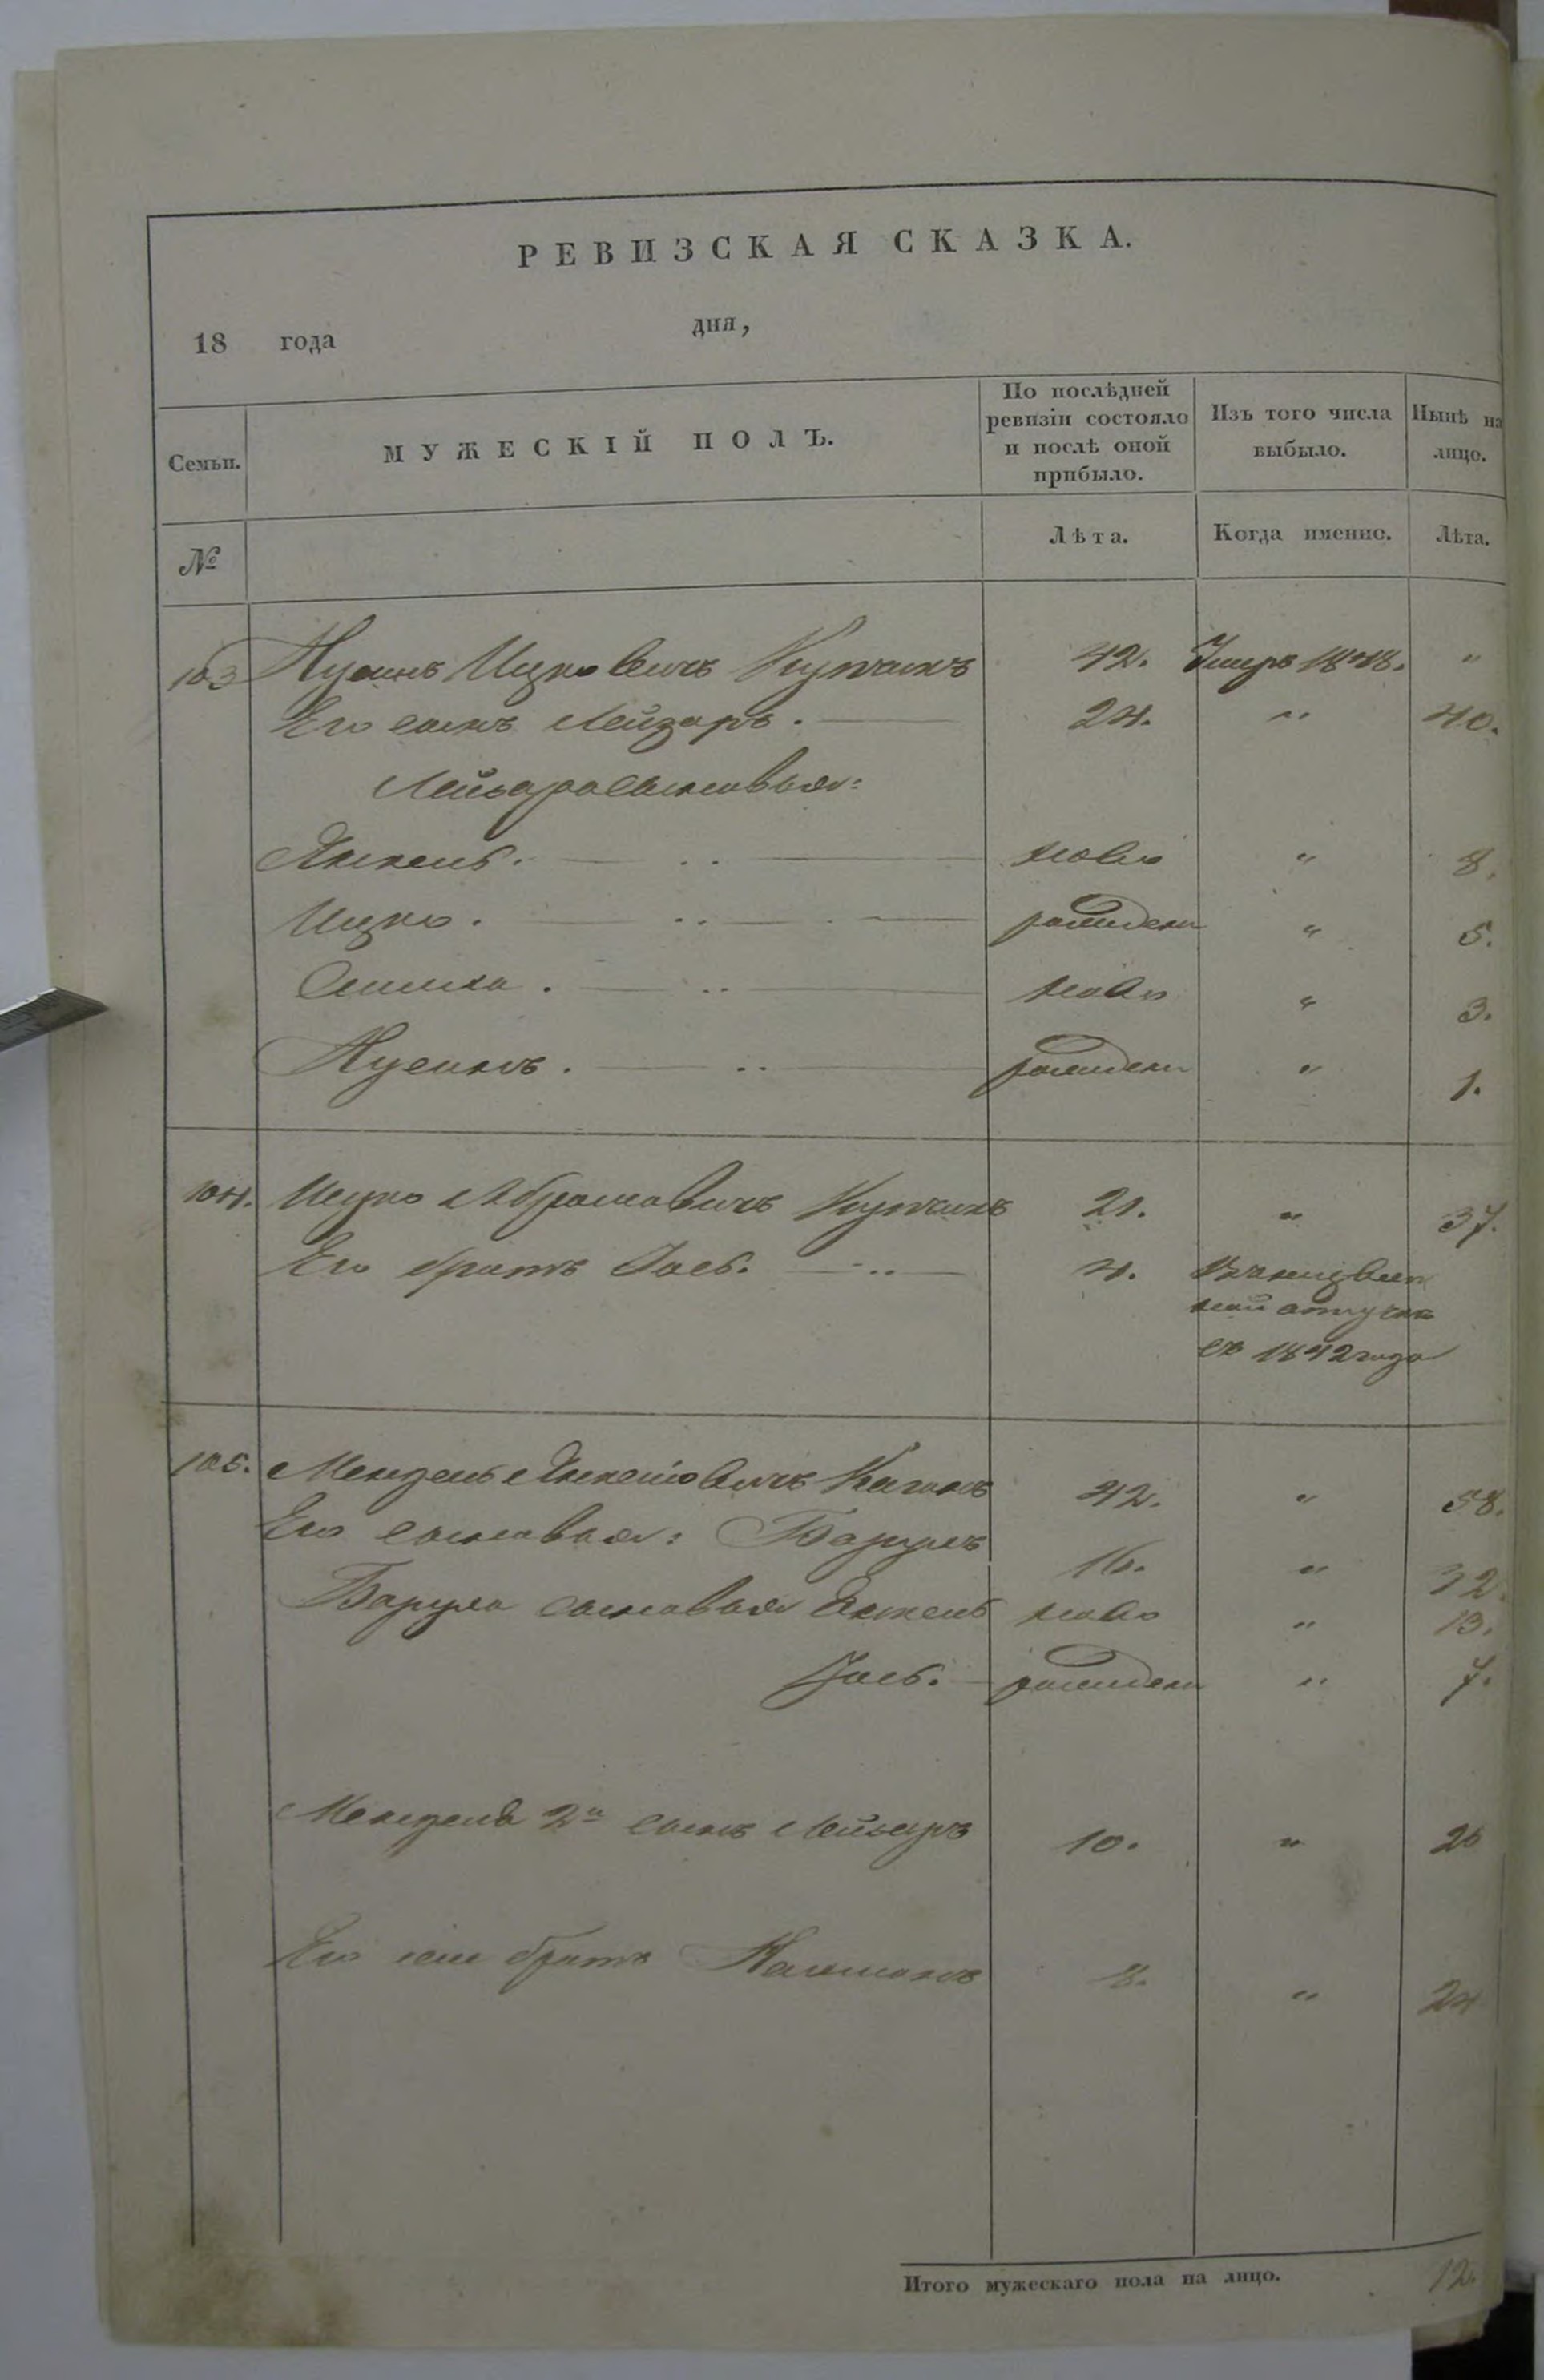 РЕВИЗСКАЯ СКАЗКА.
18 года дня,
Семьи. МУЖЕСКІЙ ПОЛЪ. По послѣдней ревизіи состояло и послѣ оной прибыло. Изъ того числа выбыло. Нынѣ на лицо.
№ Лѣта. Когда именно. Лѣта.
103 Нусинъ Ицковичъ 42. Умеръ 1848. "
Его сынъ Лейзаръ. 24. " 40.
Лейзара сыновья:
Янкель. ново " 8.
Ицко. рожденн " 5.
ново " 3.
Нусинъ. рожденн " 1.
104. Ицко Абрамовичъ 21. " 37.
Его братъ Іось. 4.
ной отлучке
съ 1842 года
105. Мендель Янкелiовичъ Каганъ 42. " 58.
Его сыновья: Барухъ 16. " 32.
Баруха сыновья Янкель ново " 13.
Іось. рожденн " 7.
Менделя 2й сынъ Лейзаръ 10. " 26
Его братъ Калманъ 8. " 24
Итого мужескаго пола на лицо. 12.